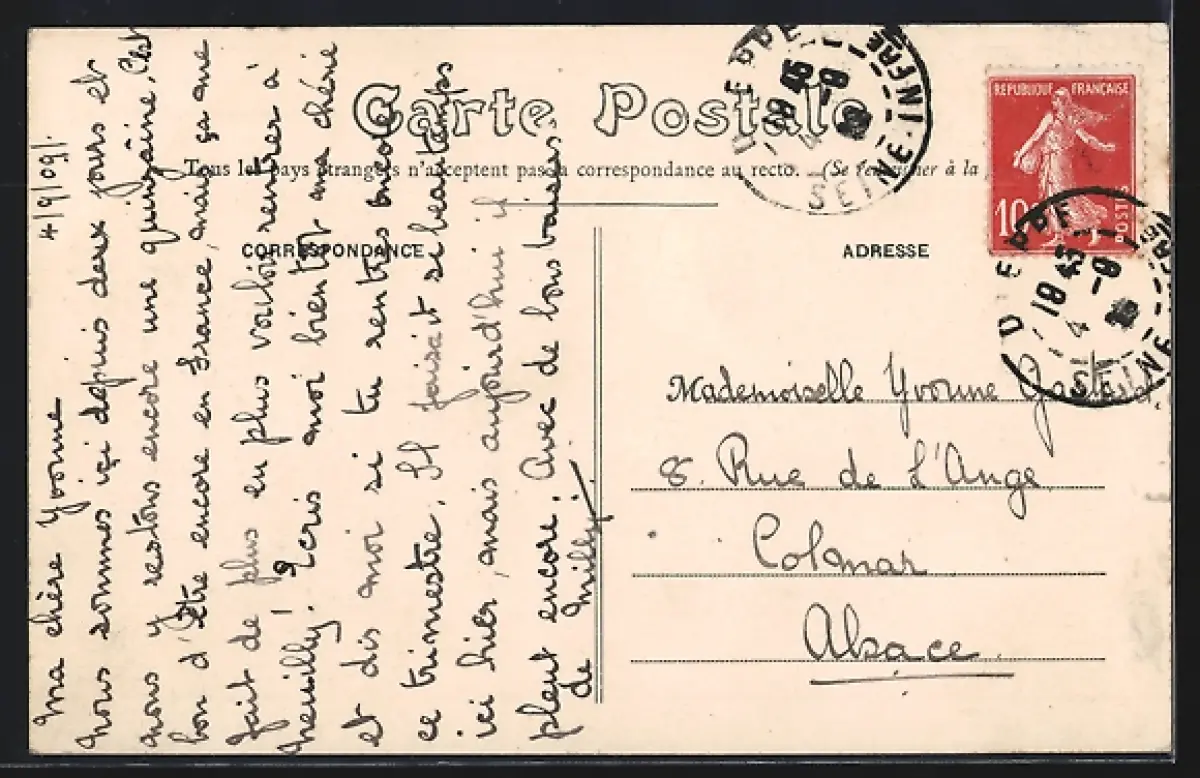 Carte Postale
Tous les pays étrangers n'acceptent pas la correspondance au recto. (Se renseigner à la
CORRESPONDANCE
ADRESSE
REPUBLIQUE FRANÇAISE
10c
POSTES
DIEPPE
SEINE-INFRE
DIEPPE
SEINE-INFRE
4/9/09.
Ma chère Yvonne
Nous sommes içi depuis deux jours et
nous y restons encore une quinzaine. C'est
bon d'être encore en France, mais ça me
fait de plus en plus vouloir rentrer à
Neuilly! Ecris moi bientôt ma chérie
et dis moi si tu rentres encore
ce trimestre. Il faisait si beau temps
ici hier, mais aujourd'hui il
pleut encore. Avec de bons baisers
de Milly.
Mademoiselle Yvonne
8. Rue de L'Ange
Colmar
Alsace.